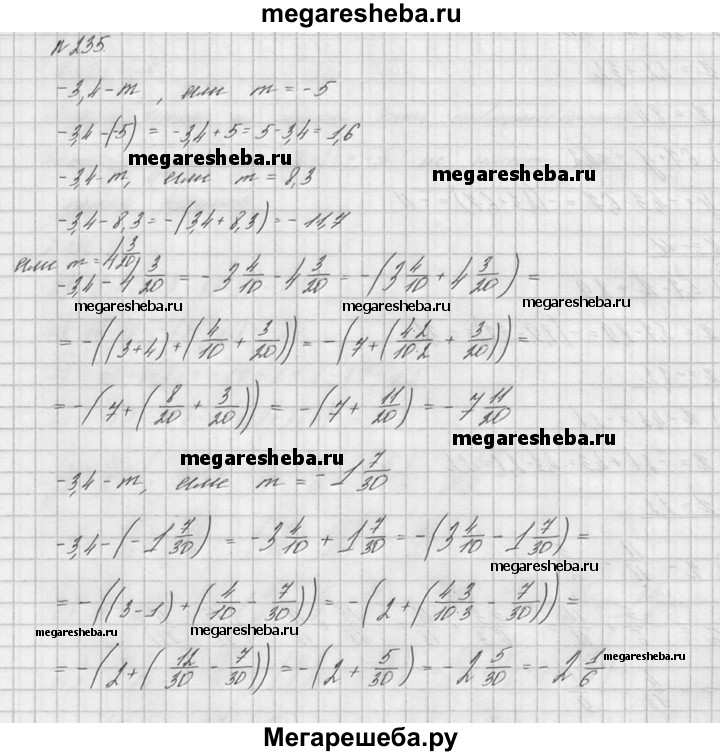 megaresheba.ru
№235.
-3,4-m, если m = -5
-3,4-(-5) = -3,4+5 = 5-3,4 = 1,6
megaresheba.ru megaresheba.ru
-3,4-m, если m = 8,3
-3,4-8,3 = -(3,4+8,3) = -11,7
если m = 4 3/20
-3,4-4 3/20 = -3 4/10 - 4 3/20 = -(3 4/10 + 4 3/20) =
megaresheba.ru megaresheba.ru megaresheba.ru
= -((3+4)+(4/10 + 3/20)) = -(7+(4·2/10·2 + 3/20)) =
= -(7+(8/20 + 3/20)) = -(7 + 11/20) = -7 11/20
megaresheba.ru
megaresheba.ru
-3,4-m, если m = -1 7/30
-3,4-(-1 7/30) = -3 4/10 + 1 7/30 = -(3 4/10 - 1 7/30) =
megaresheba.ru
= -((3-1)+(4/10 - 7/30)) = -(2+(4·3/10·3 - 7/30)) =
megaresheba.ru megaresheba.ru
= -(2+(12/30 - 7/30)) = -(2 + 5/30) = -2 5/30 = -2 1/6
megaresheba.ru
Мегарешеба.ру